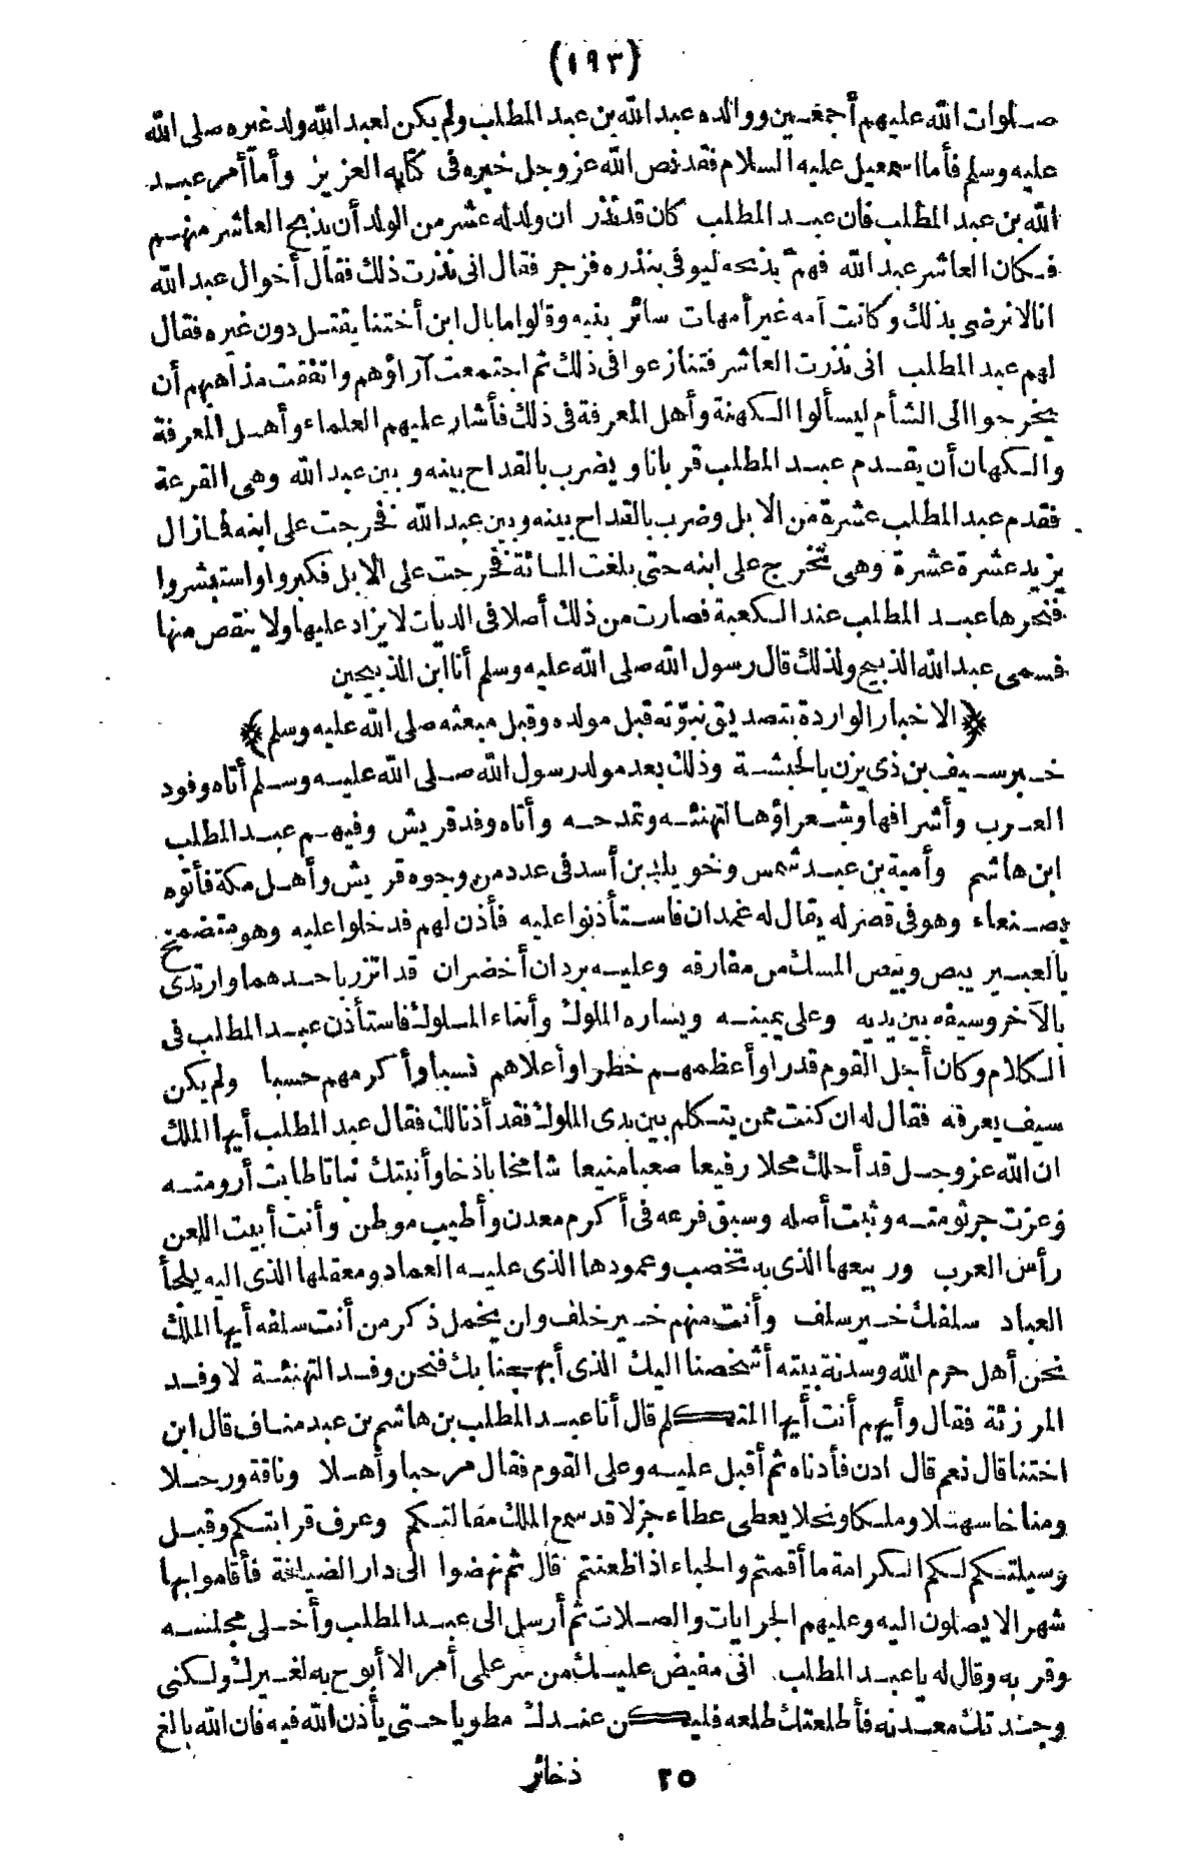 (١٩٣)
صلوات الله عليهم أجمعين ووالده عبد الله بن عبد المطلب ولم يكن لعبد الله ولد غيره صلى الله
عليه وسلم فأما اسمعيل عليه السلام فقد نص الله عز وجل خبره فى كتابه العزيز وأما أمر عبد
الله بن عبد المطلب فان عبد المطلب كان قد نذر ان ولد له عشر من الولد أن يذبح العاشر منهم
فكان العاشر عبد الله فهمّ بذبحه ليوفى بنذره فزجر فقال انى نذرت ذلك فقال أخوال عبد الله
انا لا نرضى بذلك وكانت أمه غير أمهات سائر بنيه وقالوا ما بال ابن أختنا يقتل دون غيره فقال
لهم عبد المطلب انى نذرت العاشر فتنازعوا فى ذلك ثم اجتمعت آراؤهم واتفقت مذاهبهم أن
يخرجوا الى الشأم ليسألوا الكهنة وأهل المعرفة فى ذلك فأشار عليهم العلماء وأهل المعرفة
والكهان أن يقدم عبد المطلب قربانا ويضرب بالقداح بينه وبين عبد الله وهى القرعة
فقدم عبد المطلب عشرة من الابل وضرب بالقداح بينه وبين عبد الله فخرجت على ابنه فما زال
يزيد عشرة عشرة وهى تخرج على ابنه حتى بلغت المائة فخرجت على الابل فكبروا واستبشروا
فنحرها عبد المطلب عند الكعبة فصارت من ذلك أصلا فى الديات لا يزاد عليها ولا ينقص منها
فسمى عبد الله الذبيح ولذلك قال رسول الله صلى الله عليه وسلم أنا ابن الذبيحين
﴿الاخبار الواردة بتصديق نبوّته قبل مولده وقبل مبعثه صلى الله عليه وسلم﴾
خبر سيف بن ذى يزن بالحبشة وذلك بعد مولد رسول الله صلى الله عليه وسلم أتاه وفود
العرب وأشرافها وشعراؤها لتهنئه وتمدحه وأتاه وفد قريش وفيهم عبد المطلب
ابن هاشم وأمية بن عبد شمس وخويلد بن أسد فى عدد من وجوه قريش وأهل مكة فأتوه
بصنعاء وهو فى قصر له يقال له غمدان فاستأذنوا عليه فأذن لهم فدخلوا عليه وهو متضمخ
بالعبير يبص وبيص المسك من مفارقه وعليه بردان أخضران قد اتزر باحدهما وارتدى
بالآخر وسيفه بين يديه وعلى يمينه ويساره الملوك وأبناء الملوك فاستأذن عبد المطلب فى
الكلام وكان أجل القوم قدرا وأعظمهم خطرا وأعلاهم نسبا وأكرمهم حسبا ولم يكن
سيف يعرفه فقال له ان كنت ممن يتكلم بين يدى الملوك فقد أذنا لك فقال عبد المطلب أيها الملك
ان الله عز وجل قد أحلك محلا رفيعا صعبا منيعا شامخا باذخا وأنبتك نباتا طابت أرومته
وعزت جرثومته وثبت أصله وسبق فرعه فى أكرم معدن وأطيب موطن وأنت أبيت اللعن
رأس العرب وربيعها الذى به تخصب وعمودها الذى عليه العماد ومعقلها الذى اليه يلجأ
العباد سلفك خير سلف وأنت منهم خير خلف وان يخمل ذكر من أنت سلفه أيها الملك
نحن أهل حرم الله وسدنة بيته أشخصنا اليك الذى أبهجنا بك فنحن وفد التهنئة لا وفد
المرزئة فقال وأيهم أنت أيها المتكلم قال أنا عبد المطلب بن هاشم بن عبد مناف قال ابن
اختنا قال نعم قال ادن فأدناه ثم أقبل عليه وعلى القوم فقال مرحبا وأهلا وناقة ورحلا
ومناخا سهلا وملكا ونحلا يعطى عطاء جزلا قد سمع الملك مقالتكم وعرف قرابتكم وقبل
وسيلتكم لكم الكرامة ما أقمتم والحباء اذا ظعنتم قال ثم نهضوا الى دار الضيافة فأقاموا بها
شهرا لا يصلون اليه وعليهم الجرايات والصلات ثم أرسل الى عبد المطلب وأخلى مجلسه
وقربه وقال له يا عبد المطلب انى مفيض عليك من سر علمى أمرا لا أبوح به لغيرك ولكنى
وجدتك معدنه فأطلعتك طلعه فليكن عندك مطويا حتى يأذن الله فيه فان الله بالغ
٢٥ ذخائر